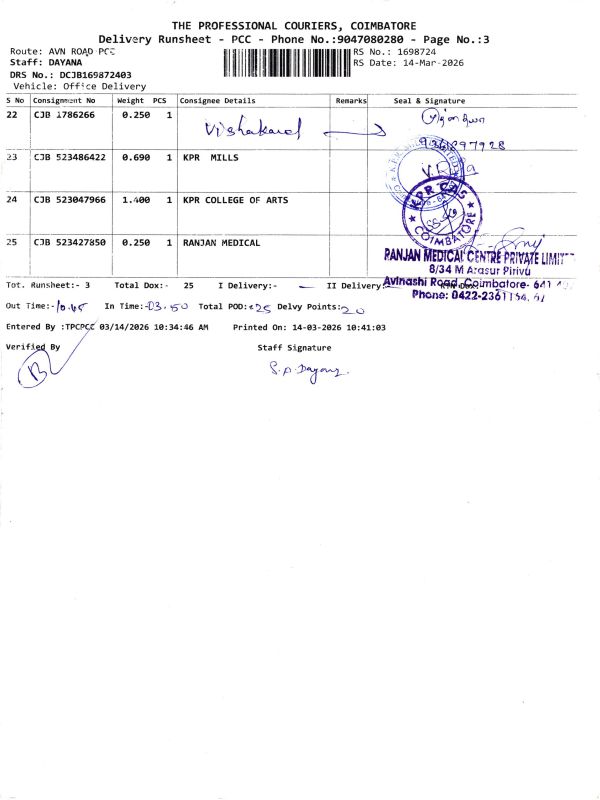 THE PROFESSIONAL COURIERS, COIMBATORE
Delivery Runsheet - PCC - Phone No.:9047080280 - Page No.:3
Route: AVN ROAD PCC
RS No.: 1698724
Staff: DAYANA
RS Date: 14-Mar-2026
DRS No.: DCJB169872403
Vehicle: Office Delivery
S No Consignment No Weight PCS Consignee Details Remarks Seal & Signature
22 CJB 1786266 0.250 1
23 CJB 523486422 0.690 1 KPR MILLS
24 CJB 523047966 1.400 1 KPR COLLEGE OF ARTS
KPR CAS
COIMBATORE
25 CJB 523427850 0.250 1 RANJAN MEDICAL
RANJAN MEDICAL CENTRE PRIVATE LIMIT
8/34 M Arasur Pirivu
Avinashi Road, Coimbatore- 641
Phone: 0422-
Tot. Runsheet:- 3 Total Dox:- 25 I Delivery:- II Delivery:
Out Time:-10.45 In Time:-03.50 Total POD:-25 Delvy Points:20
Entered By :TPCPCC 03/14/2026 10:34:46 AM Printed On: 14-03-2026 10:41:03
Verified By Staff Signature
S.A. Dayana